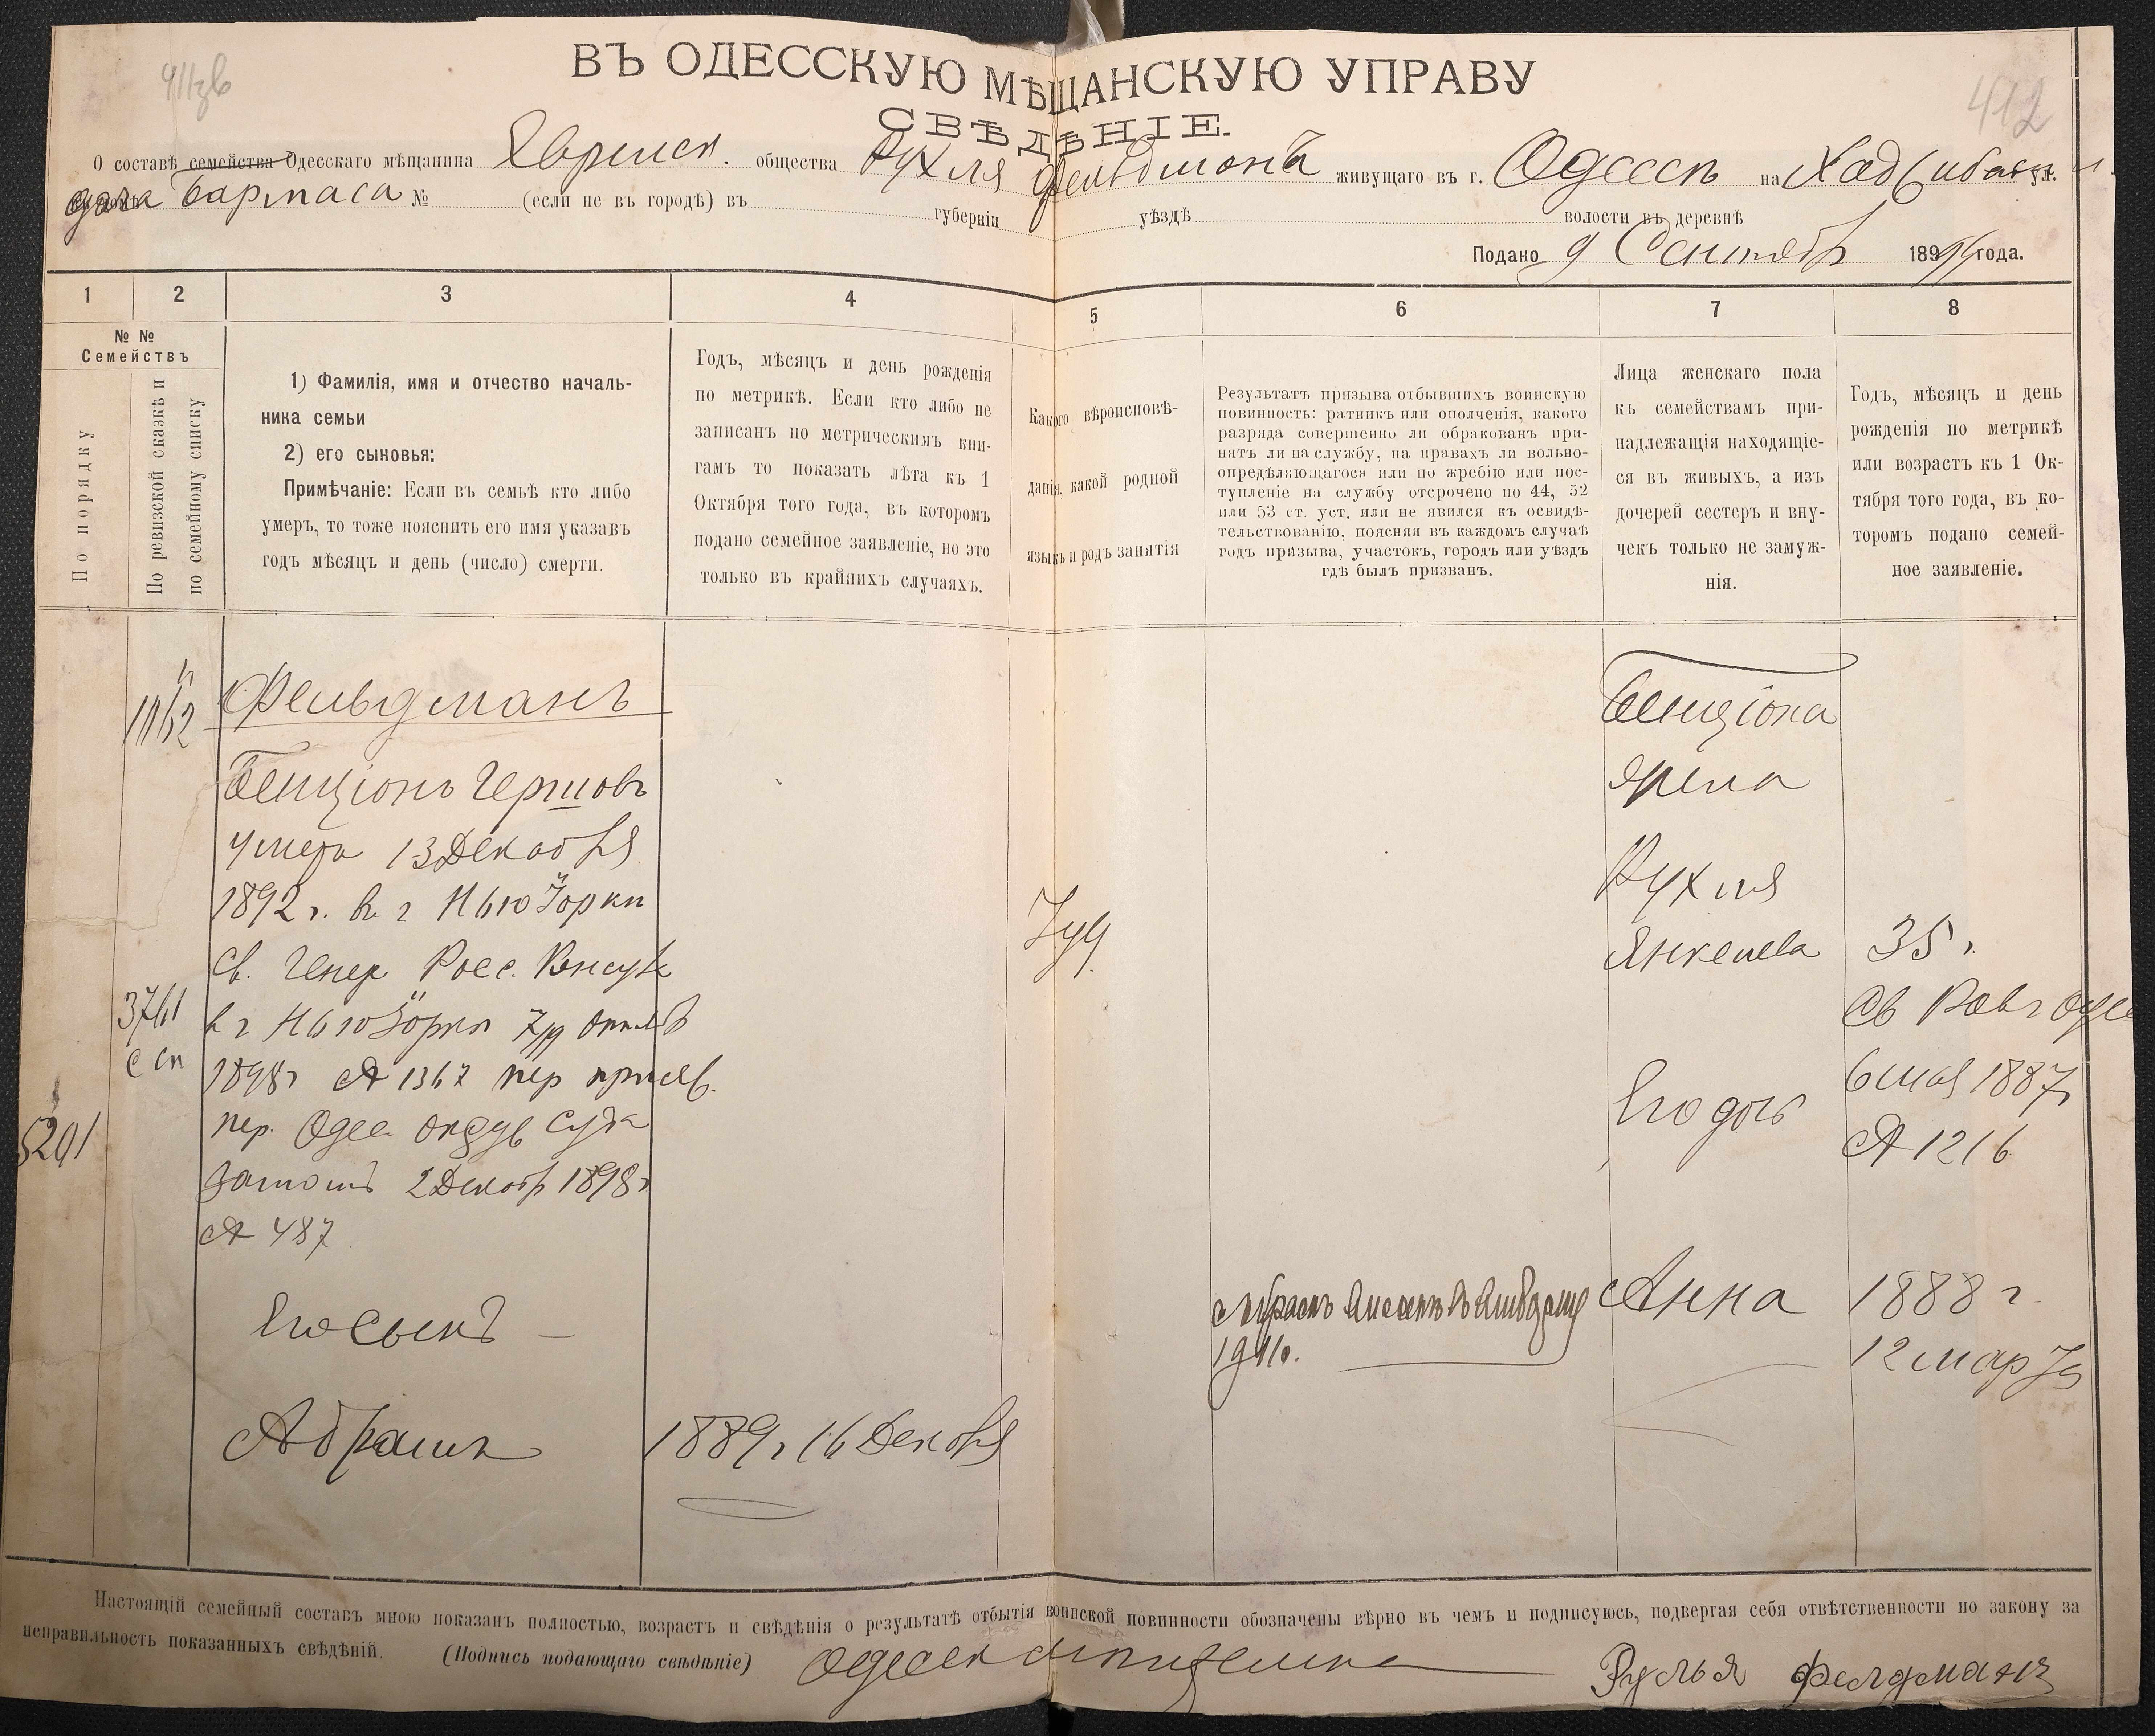 411зв
412
ВЪ ОДЕССКУЮ МѢЩАНСКУЮ УПРАВУ
СВѢДѢНІЕ.
О составѣ семейства Одесскаго мѣщанина Еврейск. общества Рухля Фельдманъ живущаго въ г. Одессѣ на Хаджибейск ул.
дача Бармаса № (если не въ городѣ) въ губерніи уѣздѣ волости въ деревнѣ
Подано 9 Сентябр 1899 года.
1 2 3 4 5 6 7 8
№ №
Семействъ
По порядку
По ревизской сказкѣ и
по семейному списку
1) Фамилія, имя и отчество началь-
ника семьи
2) его сыновья:
Примѣчаніе: Если въ семьѣ кто либо
умеръ, то тоже пояснить его имя указавъ
годъ мѣсяцъ и день (число) смерти.
Годъ, мѣсяцъ и день рожденія
по метрикѣ. Если кто либо не
записанъ по метрическимъ кни-
гамъ то показать лѣта къ 1
Октября того года, въ которомъ
подано семейное заявленіе, но это
только въ крайнихъ случаяхъ.
Какого вѣроисповѣ-
данія, какой родной
языкъ и родъ занятія
Результатъ призыва отбывшихъ воинскую
повинность: ратникъ или ополченія, какого
разряда совершенно ли обракованъ при-
нятъ ли на службу, на правахъ ли вольно-
опредѣляющагося или по жребію или пос-
тупленіе на службу отсрочено по 44, 52
или 53 ст. уст. или не явился къ освидѣ-
тельствованію, поясняя въ каждомъ случаѣ
годъ призыва, участокъ, городъ или уѣздъ
гдѣ былъ призванъ.
Лица женскаго пола
къ семействамъ при-
надлежащія находящіе-
ся въ живыхъ, а изъ
дочерей сестеръ и вну-
чекъ только не замуж-
нія.
Годъ, мѣсяцъ и день
рожденія по метрикѣ
или возрастъ къ 1 Ок-
тября того года, въ ко-
торомъ подано семей-
ное заявленіе.
Фельдманъ
Бенціонъ Гершовъ
умеръ 13 Декабря
1892 г. въ г Нью Йоркѣ
св. Генер Росс. Консул
в г Нью Йоркѣ
1898 г № 1367 пер присяж.
пер. Одес Окруж Суда
2 Декабр 1898 г
№ 487
Его сынъ —
Абрамъ
3761
с сп
5201
1889 г 16 Декабря
Іуд
1911 г.
Бенціона
жена
Рухля
Янкелева
Его дочь
Анна
35 г.
Св Рав г Одес
6 мая 1887 г
№ 1216
1888 г.
12 мар
Настоящій семейный составъ мною показанъ полностью, возрастъ и свѣдѣнія о результатѣ отбытія воинской повинности обозначены вѣрно въ чемъ и подписуюсь, подвергая себя отвѣтственности по закону за
неправильность показанныхъ свѣдѣній. (Подпись подающаго свѣдѣніе) Одесск Рухля Фелдманъ